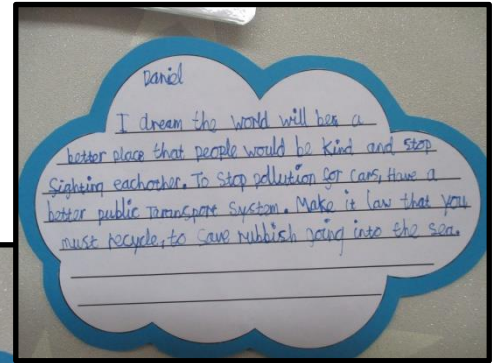 Daniel
I dream the world will bee a
better place that people would be kind and stop
Sighting eachother. To stop pollution for cars, Have a
better public Taransport System. Make it law that you
must recycle, to save rubbish going into the sea.